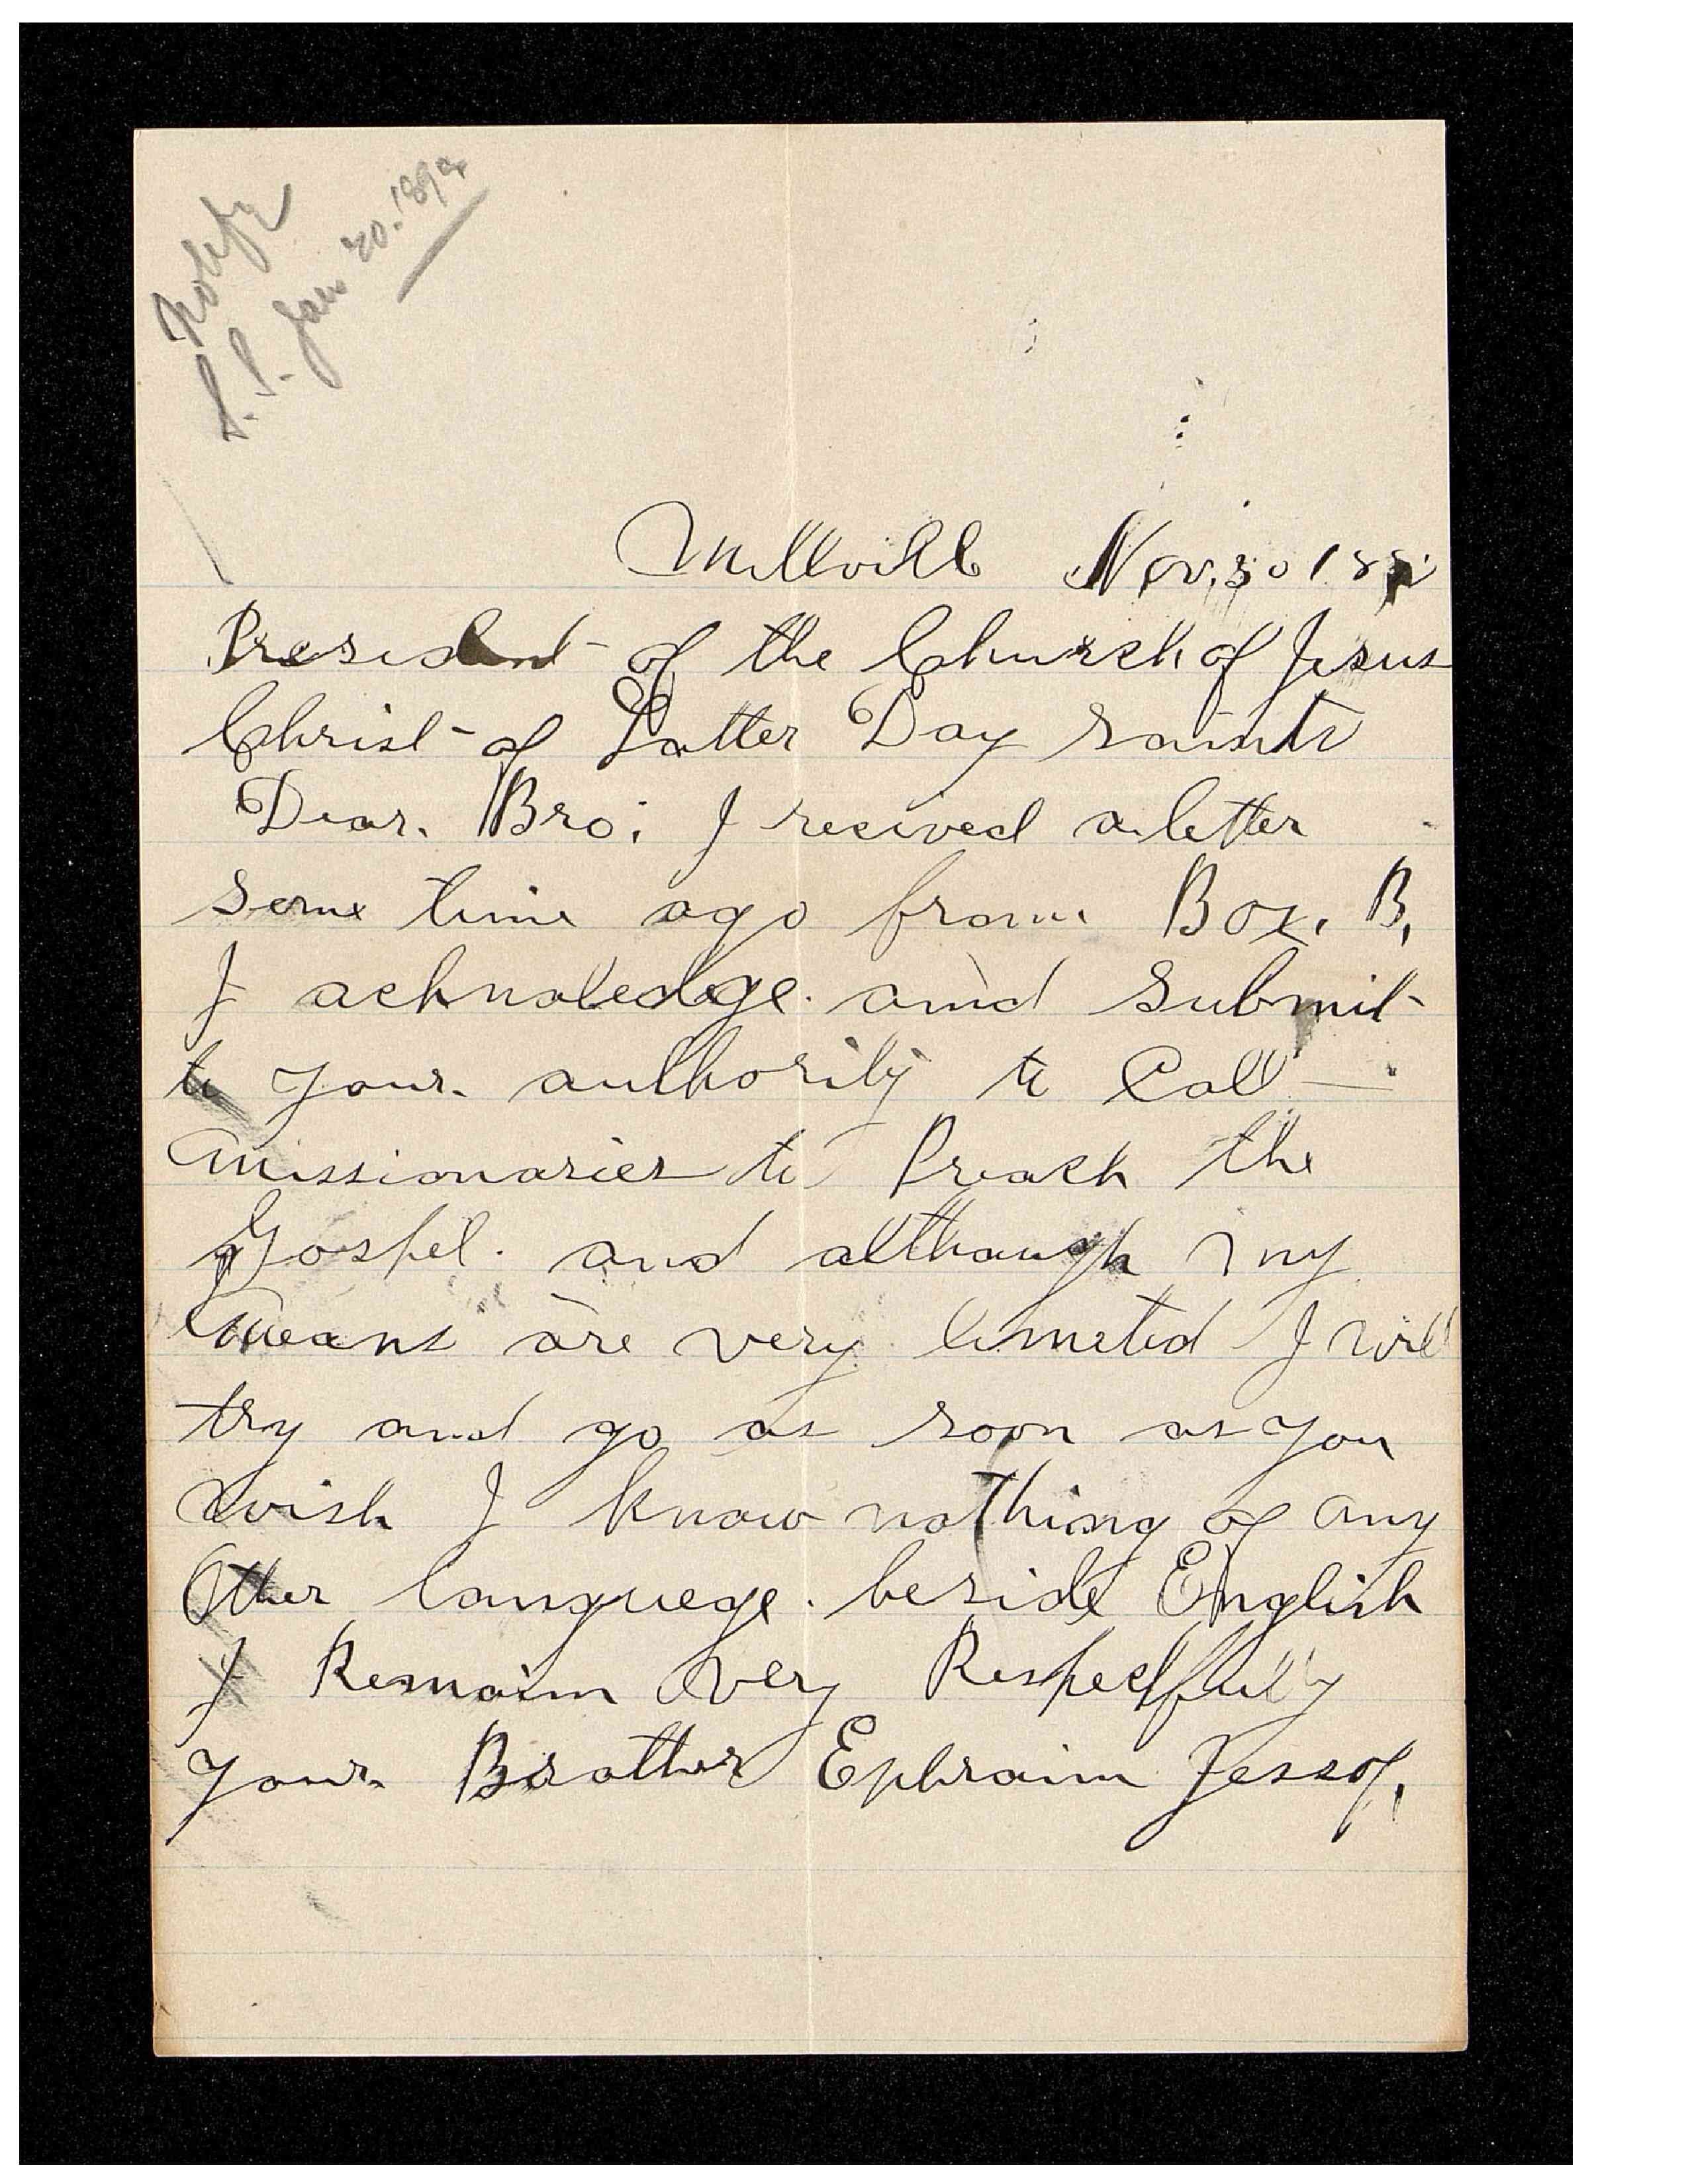 Notify
S. S. Jan 20. 189
Millvill Nov. 30 18
President of the Church of Jesus
Christ of Latter Day Saints
Dear. Bro; I recived a letter
Some time ago from Box. B.
I acknoledge. and Submit
to your authority to Call
missionaries to Preach the
Gospel. and although my
means are very limeted I will
try and go as soon as you
wish I know nothing of any
Other languege. beside English
I Remain very Respectfully
your Brother Ephraim Jessop.